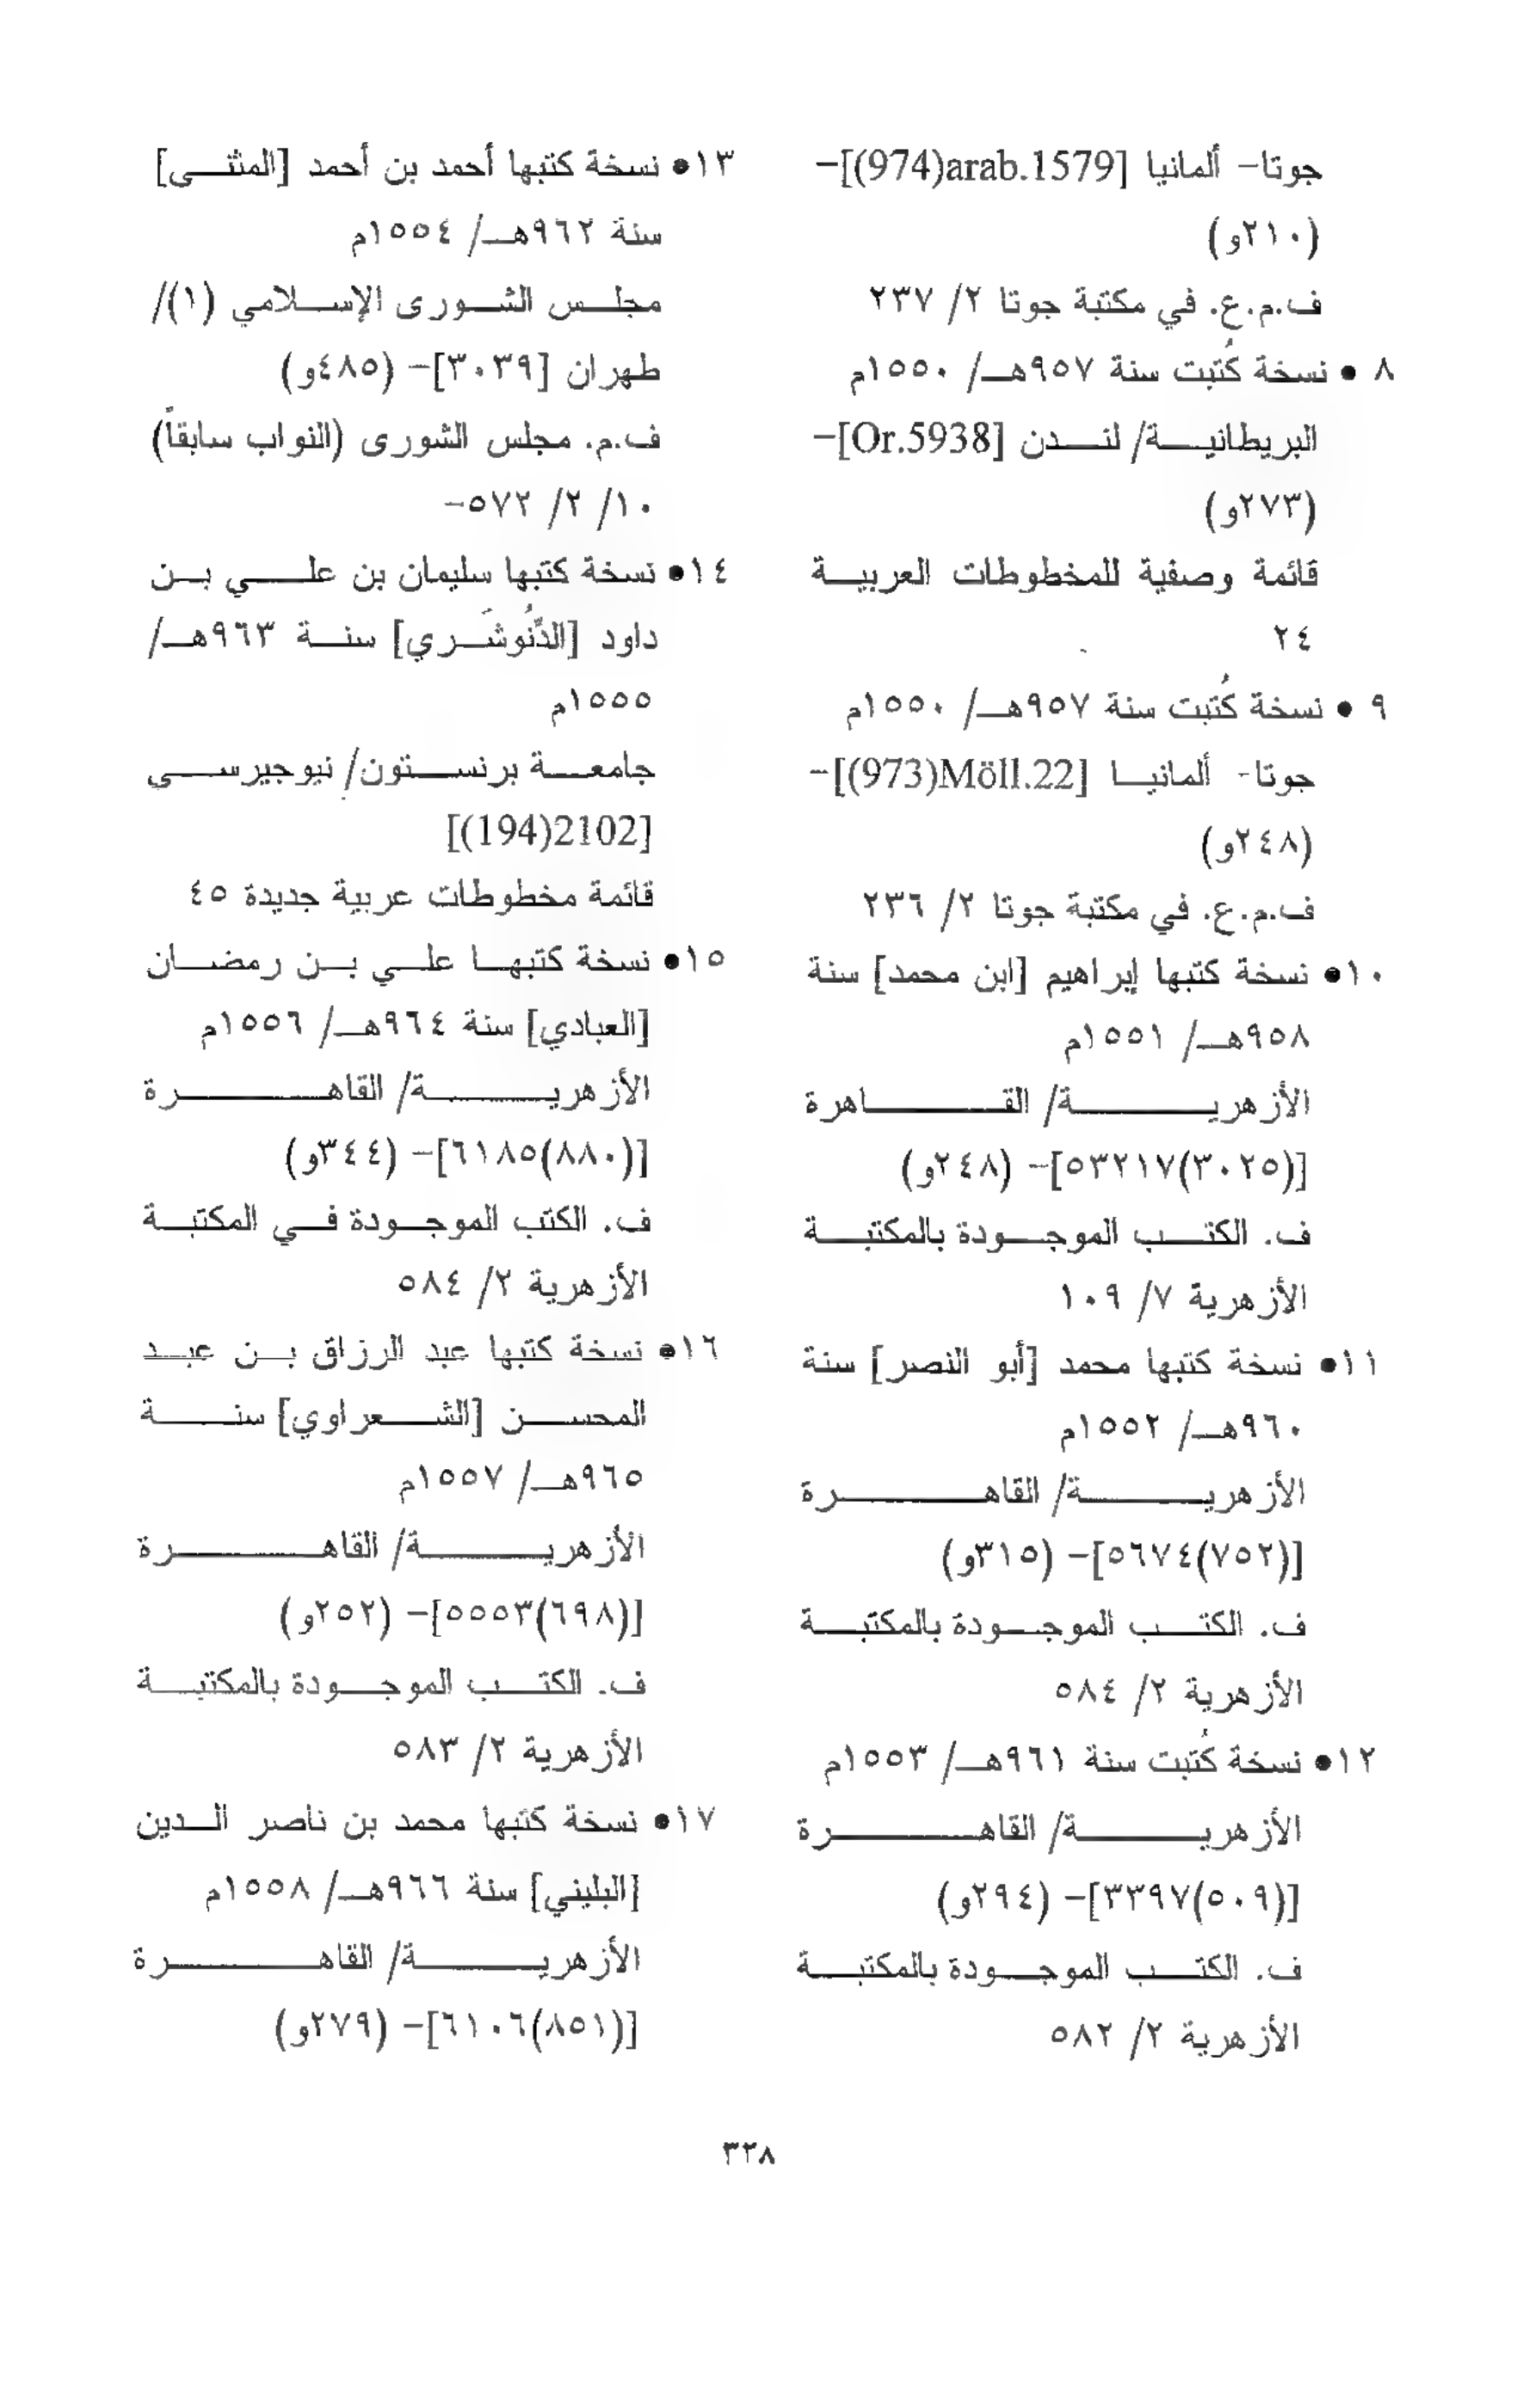 جوتا- ألمانيا [arab.1579(974)]-
(٢١٠و)
ف.م.ع. في مكتبة جوتا ٢/ ٢٣٧
٨ • نسخة كُتبت سنة ٩٥٧هـ/ ١٥٥٠م
البريطانية/ لندن [Or.5938]-
(٢٧٣و)
قائمة وصفية للمخطوطات العربية
٢٤
٩ • نسخة كُتبت سنة ٩٥٧هـ/ ١٥٥٠م
جوتا- ألمانيا [Möll.22(973)]-
(٢٤٨و)
ف.م.ع. في مكتبة جوتا ٢/ ٢٣٦
١٠• نسخة كتبها إبراهيم [ابن محمد] سنة
٩٥٨هـ/ ١٥٥١م
الأزهرية/ القاهرة
[(٣٠٢٥)٥٣٢١٧]- (٢٤٨و)
ف. الكتب الموجودة بالمكتبة
الأزهرية ٧/ ١٠٩
١١• نسخة كتبها محمد [أبو النصر] سنة
٩٦٠هـ/ ١٥٥٢م
الأزهرية/ القاهرة
[(٧٥٢)٥٦٧٤]- (٣١٥و)
ف. الكتب الموجودة بالمكتبة
الأزهرية ٢/ ٥٨٤
١٢• نسخة كُتبت سنة ٩٦١هـ/ ١٥٥٣م
الأزهرية/ القاهرة
[(٥٠٩)٣٣٩٧]- (٢٩٤و)
ف. الكتب الموجودة بالمكتبة
الأزهرية ٢/ ٥٨٢
١٣• نسخة كتبها أحمد بن أحمد [المثنى]
سنة ٩٦٢هـ/ ١٥٥٤م
مجلس الشورى الإسلامي (١)/
طهران [٣٠٣٩]- (٤٨٥و)
ف.م. مجلس الشورى (النواب سابقاً)
١٠/ ٢/ ٥٧٢-
١٤• نسخة كتبها سليمان بن علي بن
داود [الدِّنُوشَري] سنة ٩٦٣هـ/
١٥٥٥م
جامعة برنستون/ نيوجيرسي
[2102(194)]
قائمة مخطوطات عربية جديدة ٤٥
١٥• نسخة كتبها علي بن رمضان
[العبادي] سنة ٩٦٤هـ/ ١٥٥٦م
الأزهرية/ القاهرة
[(٨٨٠)٦١٨٥]- (٣٤٤و)
ف. الكتب الموجودة في المكتبة
الأزهرية ٢/ ٥٨٤
١٦• نسخة كتبها عبد الرزاق بن عبد
المحسن [الشعراوي] سنة
٩٦٥هـ/ ١٥٥٧م
الأزهرية/ القاهرة
[(٦٩٨)٥٥٥٣]- (٢٥٢و)
ف. الكتب الموجودة بالمكتبة
الأزهرية ٢/ ٥٨٣
١٧• نسخة كتبها محمد بن ناصر الدين
[البليني] سنة ٩٦٦هـ/ ١٥٥٨م
الأزهرية/ القاهرة
[(٨٥١)٦١٠٦]- (٢٧٩و)
٣٢٨